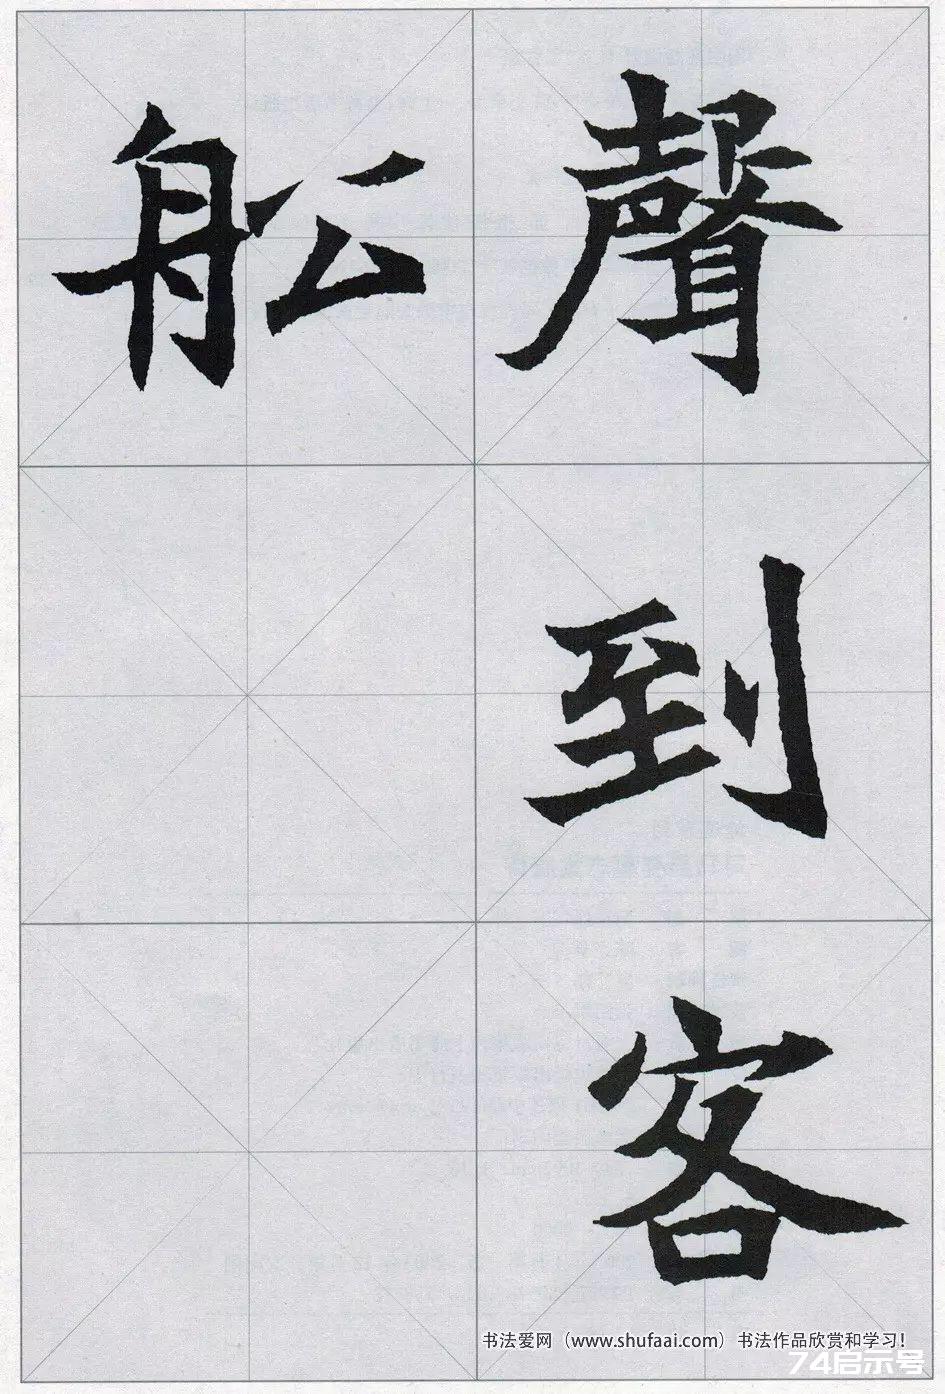 聲到客
舩
书法爱网（www.shufaai.com）书法作品欣赏和学习！
74启示号